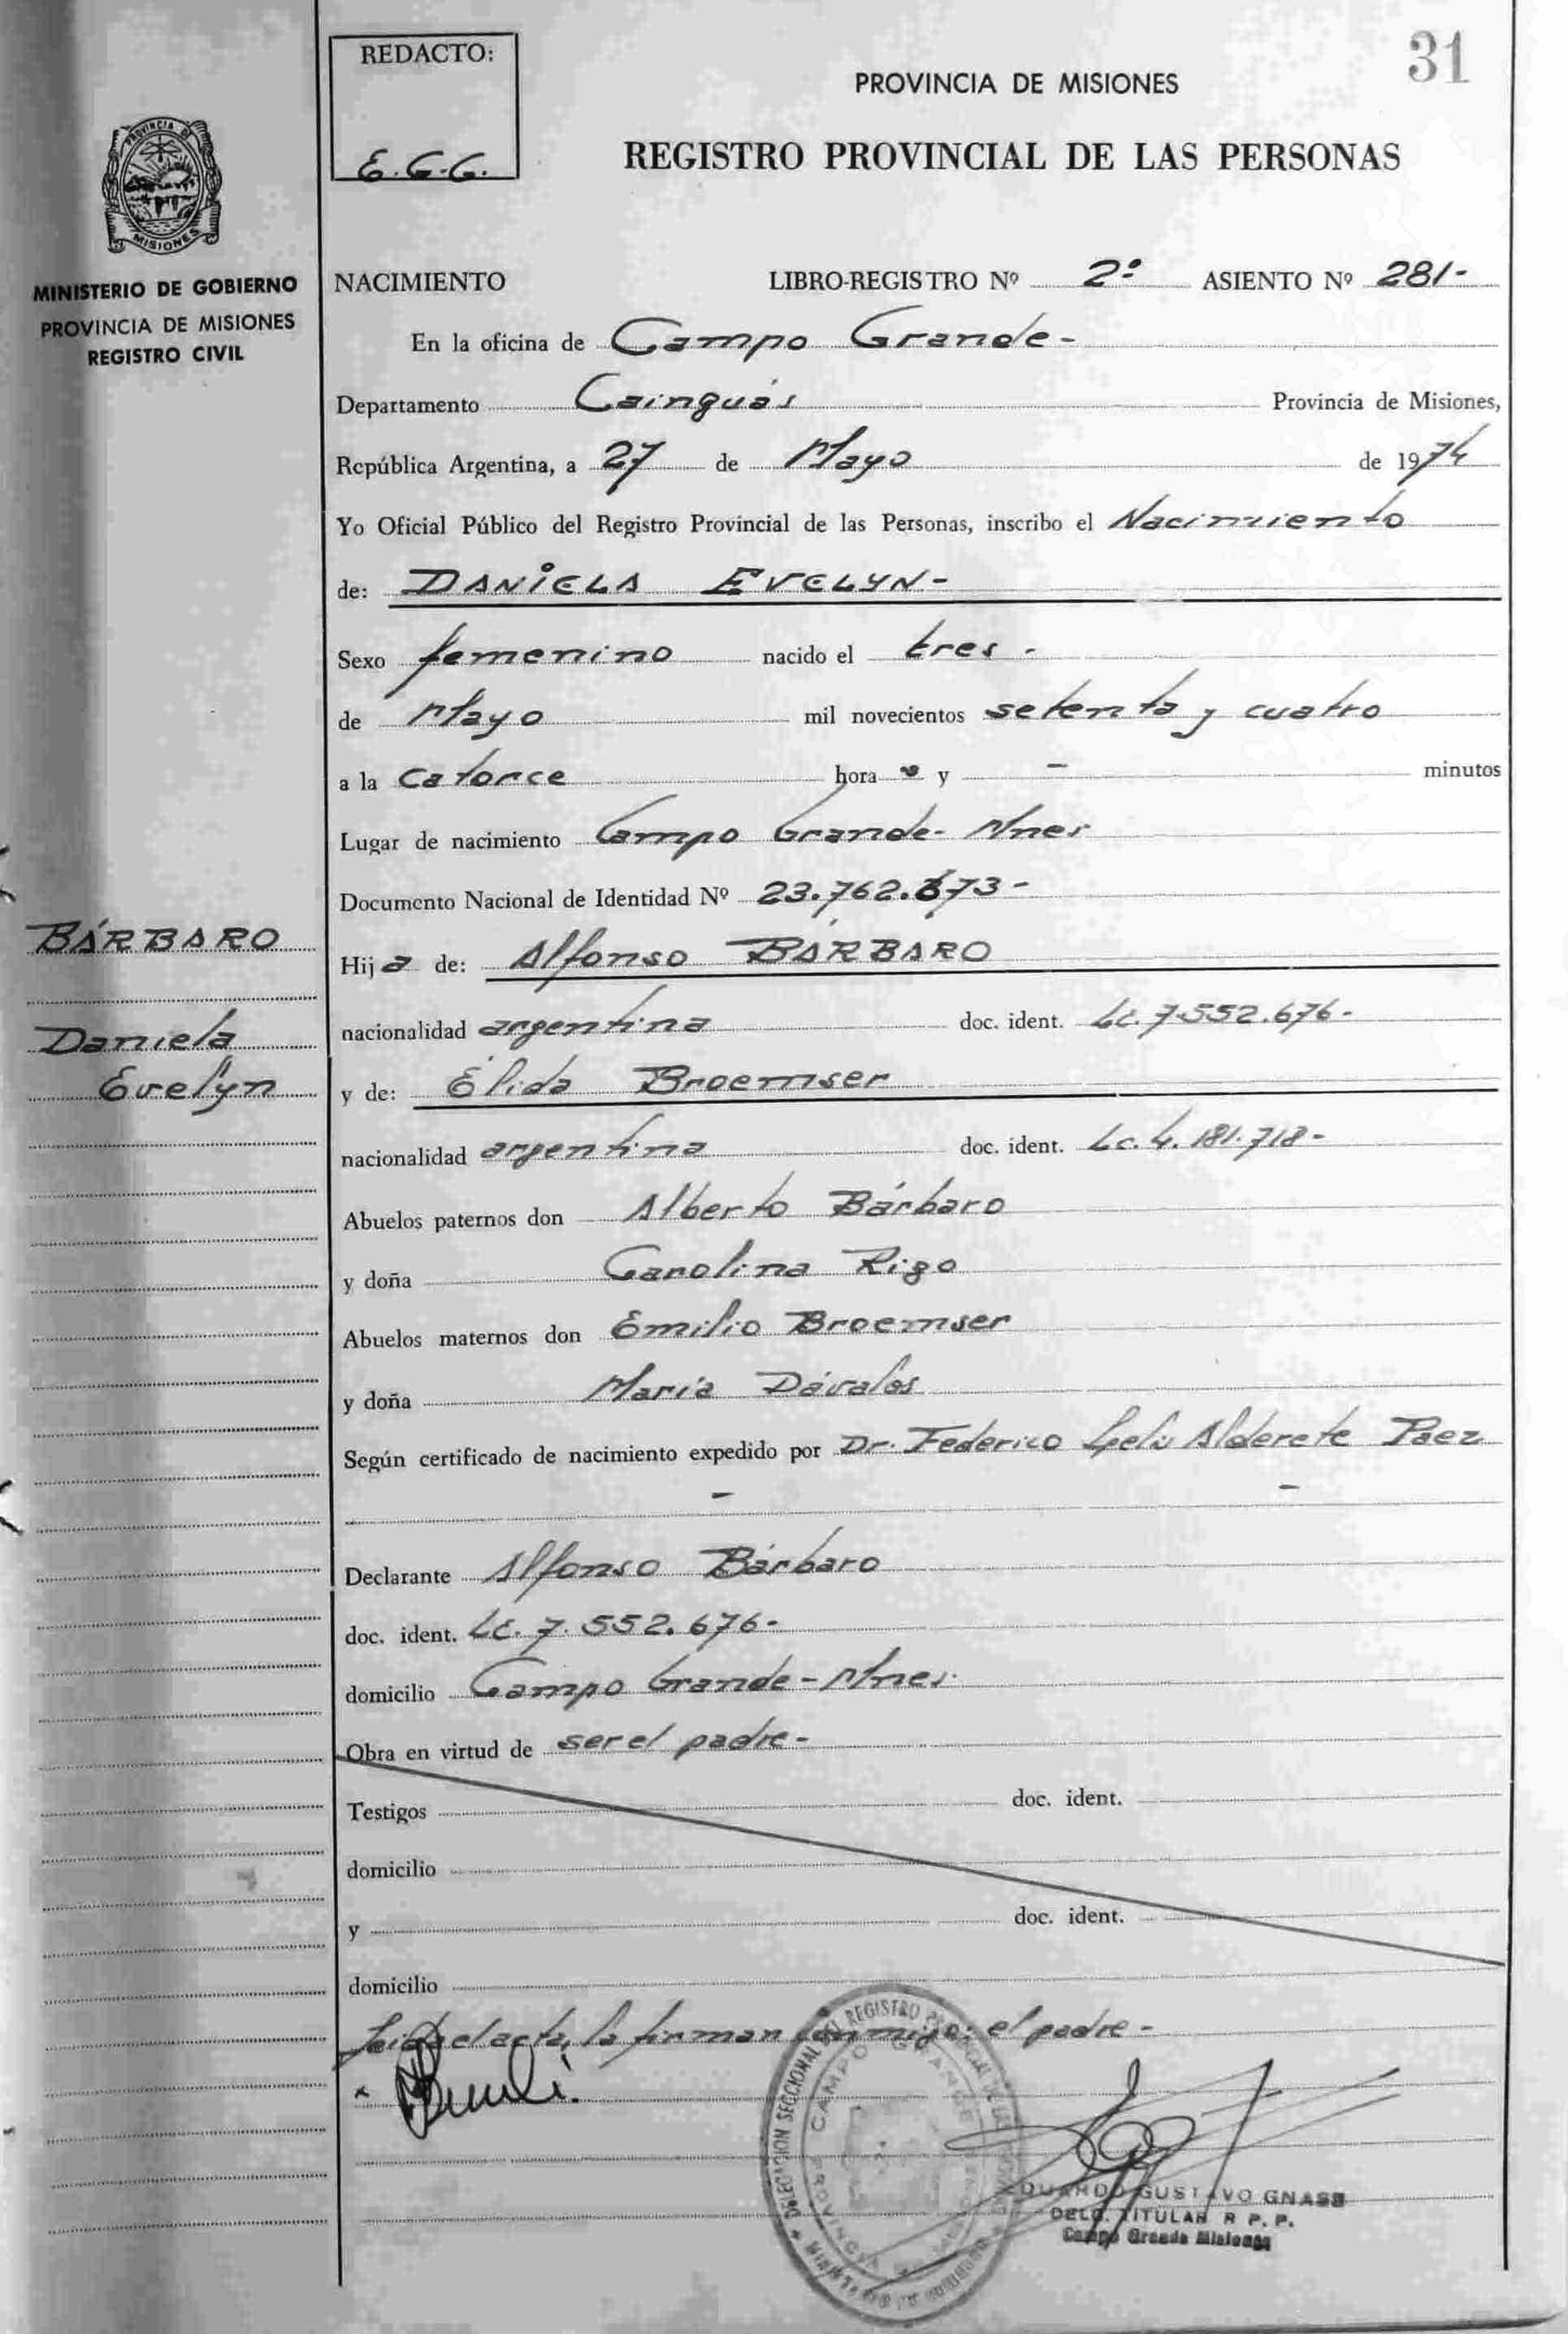 31
REDACTO:
E.G.G.
PROVINCIA DE MISIONES
REGISTRO PROVINCIAL DE LAS PERSONAS
PROVINCIA DE
MISIONES
MINISTERIO DE GOBIERNO
PROVINCIA DE MISIONES
REGISTRO CIVIL
NACIMIENTO LIBRO-REGISTRO Nº 2º ASIENTO Nº 281-
En la oficina de Campo Grande-
Departamento Cainguás Provincia de Misiones,
República Argentina, a 27 de Mayo de 1974
Yo Oficial Público del Registro Provincial de las Personas, inscribo el Nacimiento
de: DANIELA EVELYN-
Sexo femenino nacido el tres-
de Mayo mil novecientos setenta y cuatro
a la catorce hora s y - minutos
Lugar de nacimiento Campo Grande- Mnes
Documento Nacional de Identidad Nº 23.762.673-
BÁRBARO
Daniela
Evelyn
Hija de: Alfonso BÁRBARO
nacionalidad argentina doc. ident. LE. 7.552.676-
y de: Élida Broemser
nacionalidad argentina doc. ident. Lc. 4.181.718-
Abuelos paternos don Alberto Bárbaro
y doña Carolina Rigo
Abuelos maternos don Emilio Broemser
y doña María Dávalos
Según certificado de nacimiento expedido por Dr. Federico Alderete Paez
- -
Declarante Alfonso Bárbaro
doc. ident. LE. 7.552.676-
domicilio Campo Grande-Mnes.
Obra en virtud de ser el padre-
Testigos doc. ident.
domicilio
y doc. ident.
domicilio
Leida el acta, la firman conmigo: el padre-
DELEGACION SECCIONAL DEL REGISTRO PROVINCIAL DE LAS
CAMPO GRANDE
PROVINCIA DE MISIONES
DUARDO GUSTAVO GNASS
DELG. TITULAR R P. P.
Campo Grande Misiones